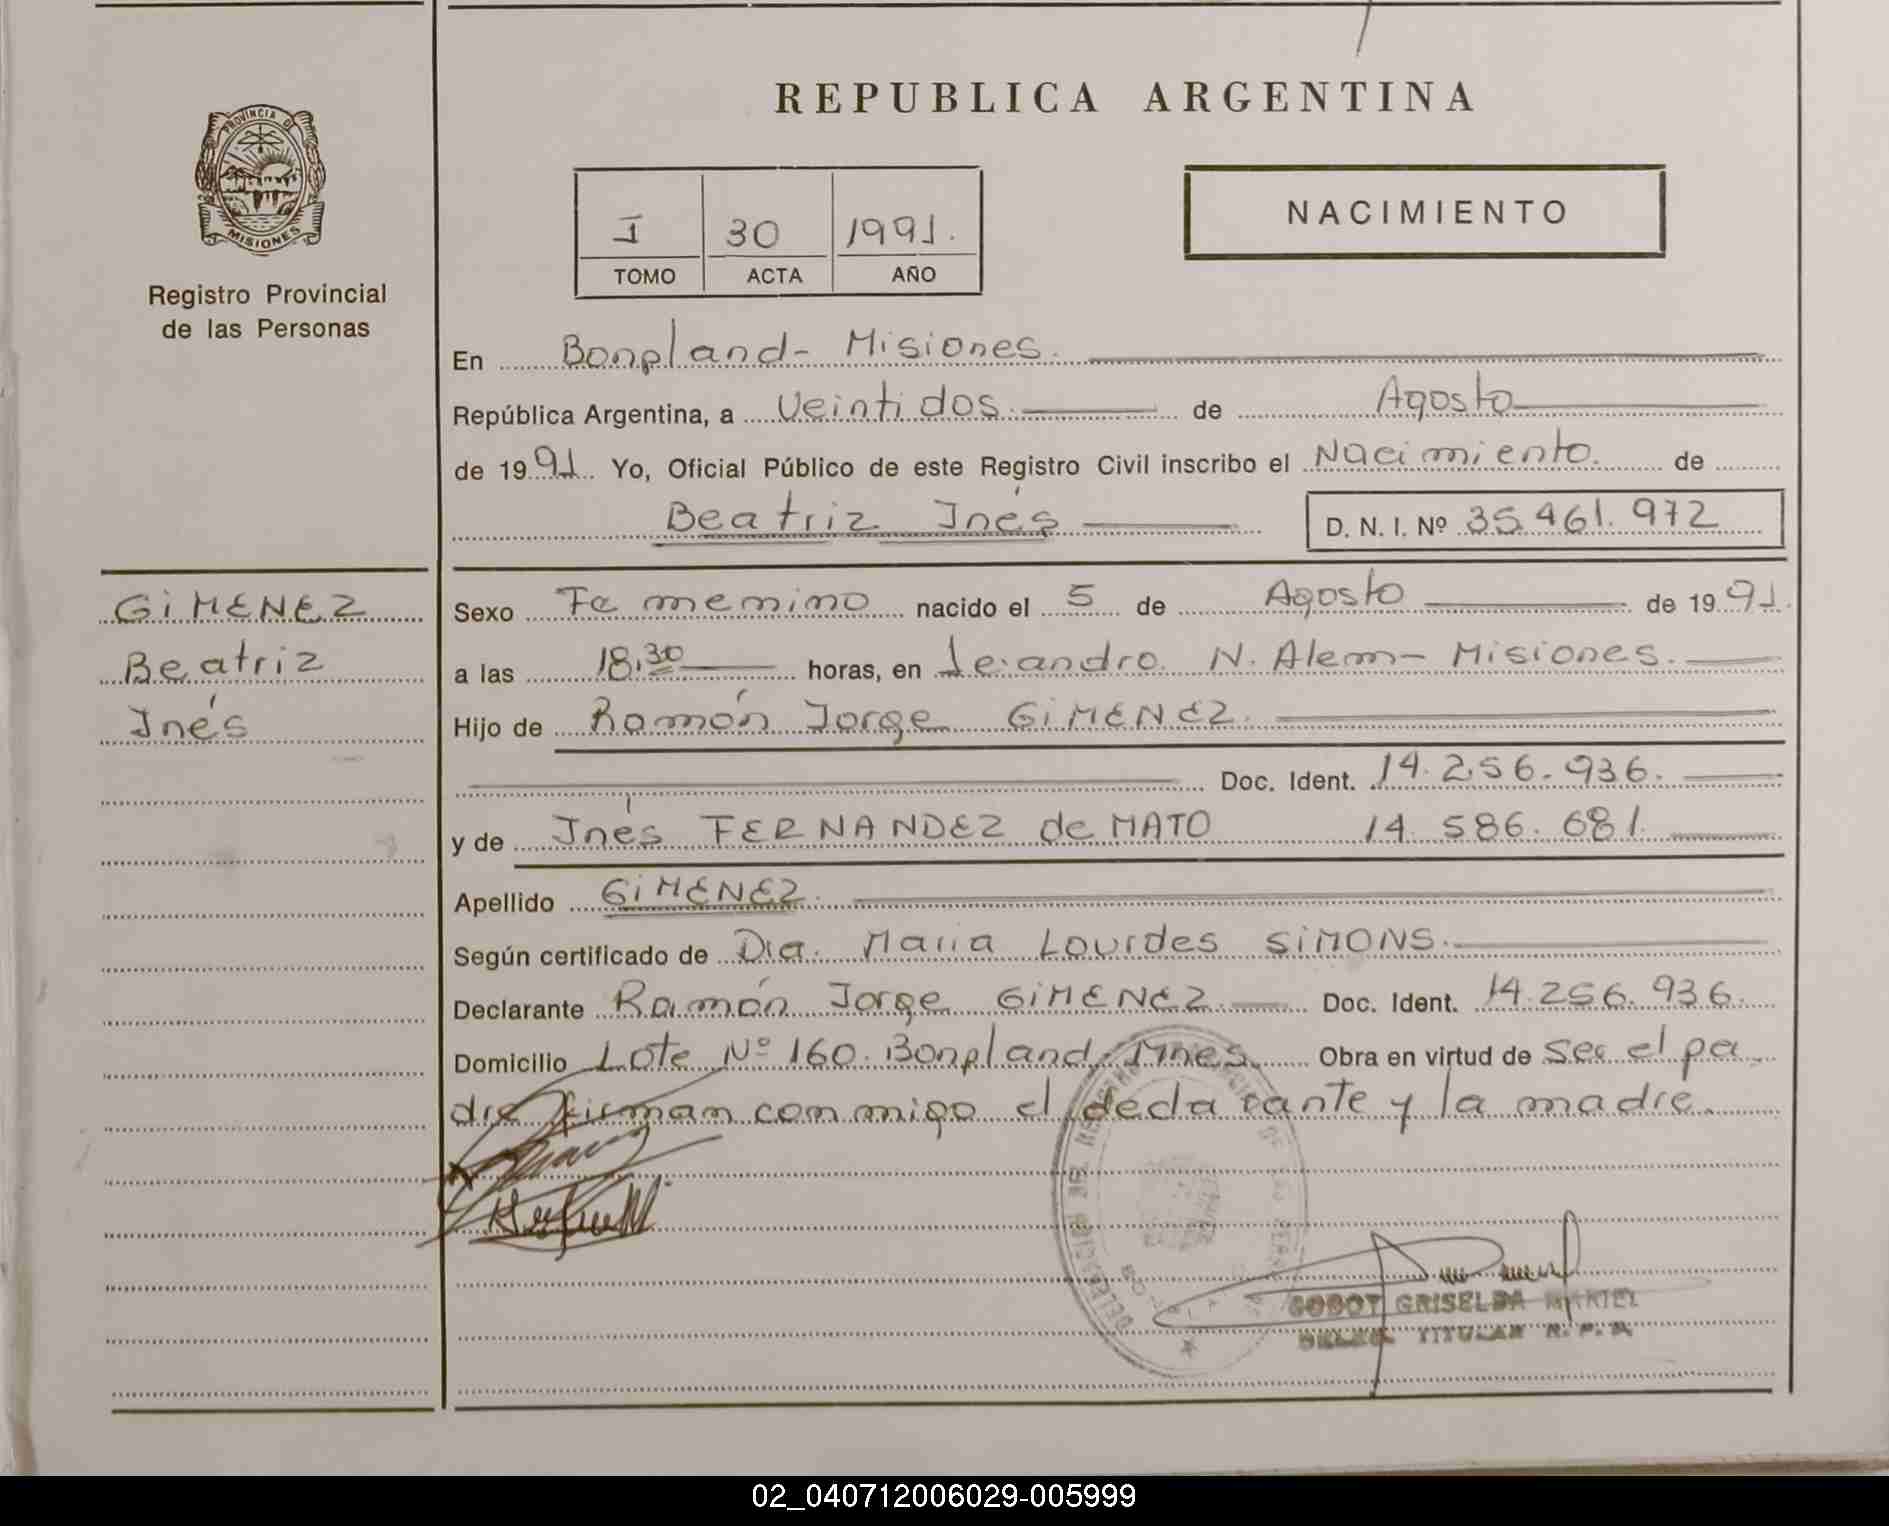 REPUBLICA ARGENTINA
PROVINCIA DE
MISIONES
Registro Provincial
de las Personas
I 30 1991.
TOMO ACTA AÑO
NACIMIENTO
En Bonpland- Misiones.
República Argentina, a Veintidos. de Agosto
de 1991. Yo, Oficial Público de este Registro Civil inscribo el Nacimiento. de
Beatriz Inés D. N. I. Nº 35.461.972
GiMENEZ
Beatriz
Inés
Sexo Femenino nacido el 5 de Agosto de 1991.
a las 18,30 horas, en Leandro. N. Alem- Misiones.
Hijo de Ramón Jorge GiMENEZ.
Doc. Ident. 14.256.936.
y de Inés FERNANDEZ de MATO 14.586.681.
Apellido GiMENEZ.
Según certificado de Dra. Maria Lourdes SiMONS.
Declarante Ramón Jorge GiMENEZ. Doc. Ident. 14.256.936.
Domicilio Lote Nº 160. Bonpland. Mnes. Obra en virtud de Ser el pa
dre firman conmigo el declarante y la madre.
GODOY GRISELDA MARIEL
TITULAR R. P. P.
02_040712006029-005999